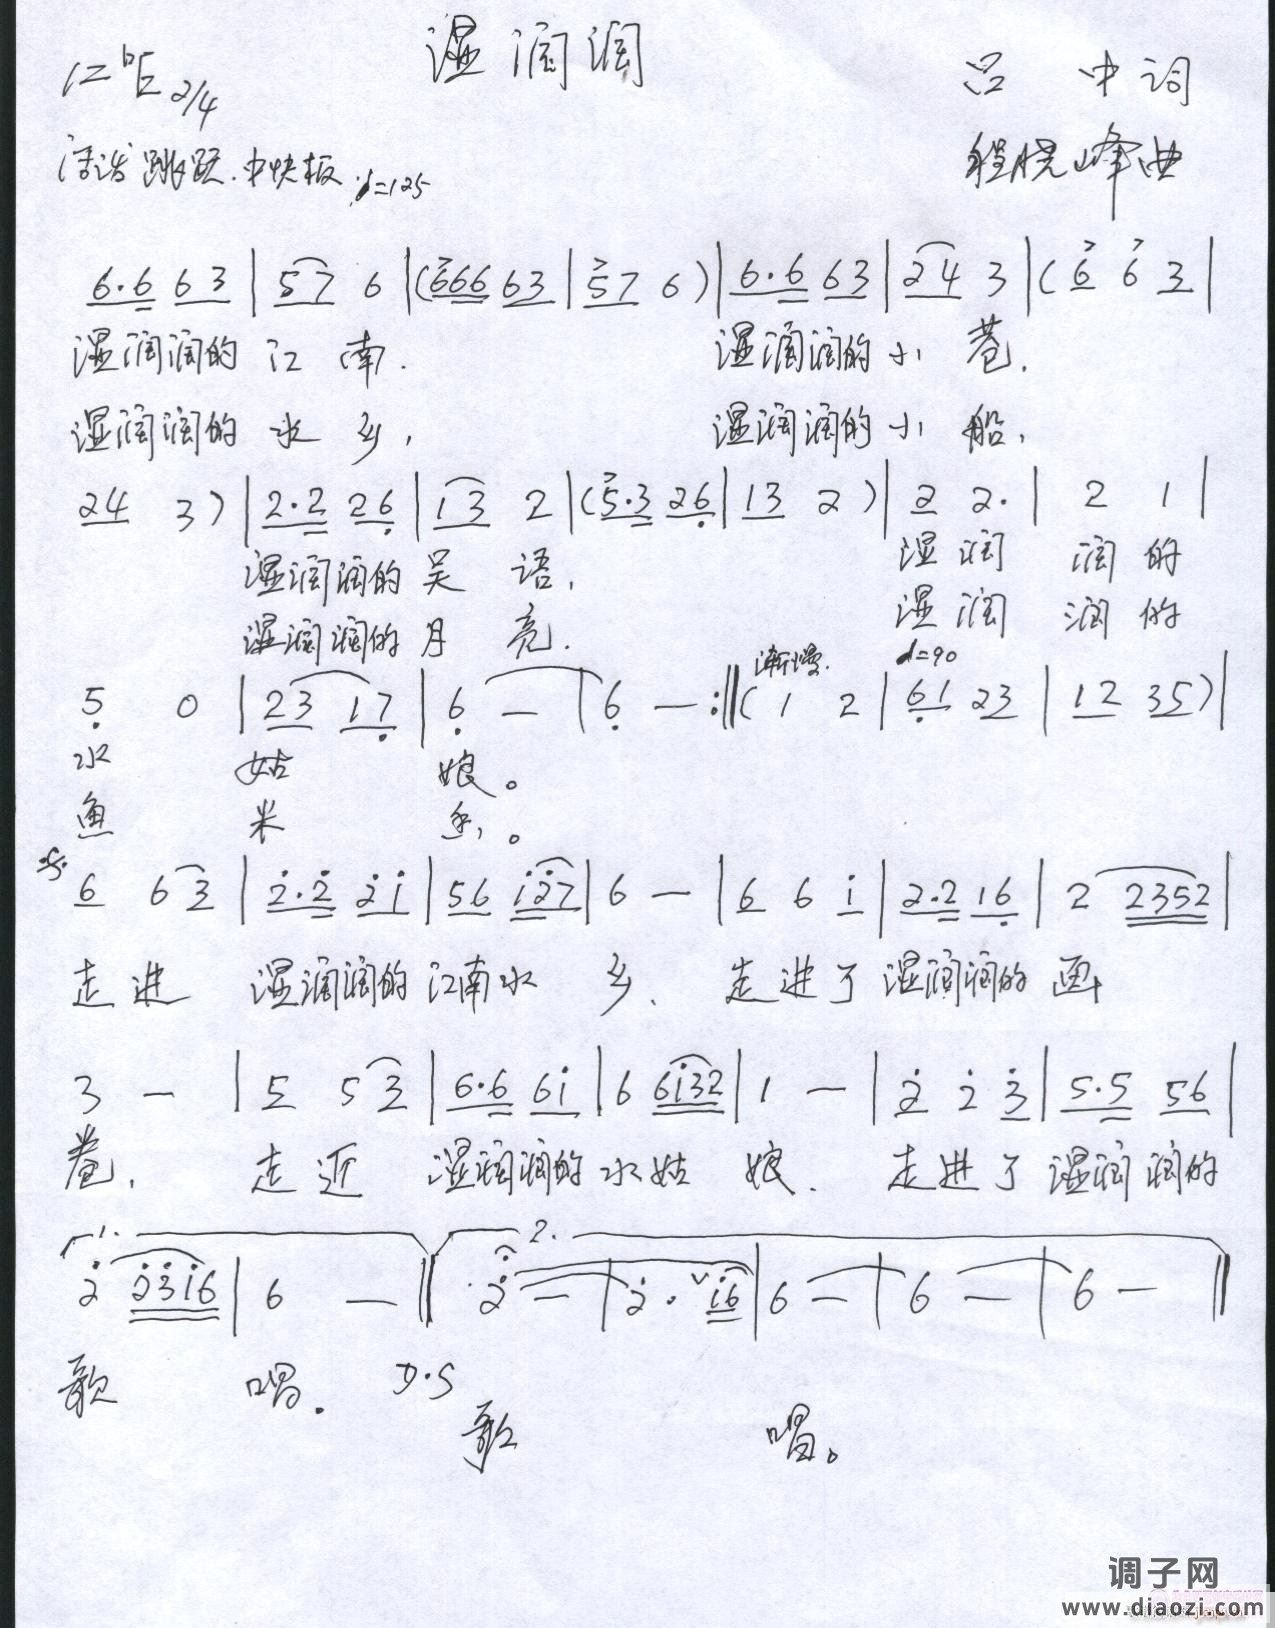 湿润润
1=bE 2/4
吕 中词
活泼 跳跃.中快板 ♩=125
程晓峰曲
6.6 63 | 57 6 |(666 63 | 57 6 )| 6.6 63 | 24 3 |( 6 6 3 |
湿润润的 江 南. 湿润润的 小 巷.
湿润润的 水 乡, 湿润润的 小 船,
24 3 )| 2.2 26 | 13 2 |( 5.3 26 | 13 2 )| 2 2. | 2 1 |
湿润润的 吴 语, 湿 润 润 的
湿润润的 月 亮. 湿 润 润 的
渐慢. ♩=90
5 0 | 23 17 | 6 — | 6 — :‖( 1 2 | 61 23 | 12 35 )|
水 姑 娘。
鱼 米 乡。
6 6 3 | 2.2 21 | 56 127 | 6 — | 6 6 1 | 2.2 16 | 2 2352 |
走 进 湿润润的 江南水 乡、 走 进 了 湿润润的 画
3 — | 5 5 3 | 6.6 61 | 6 6132 | 1 — | 2 2 3 | 5.5 56 |
巷, 走 近 湿润润的 水 姑 娘、 走 进 了 湿润润的
1. 2.
2 2316 | 6 — ‖ 2 — | 2 . 16 | 6 — | 6 — | 6 — ‖
歌 唱. D.S
歌 唱。
调子网
www.diaozi.com